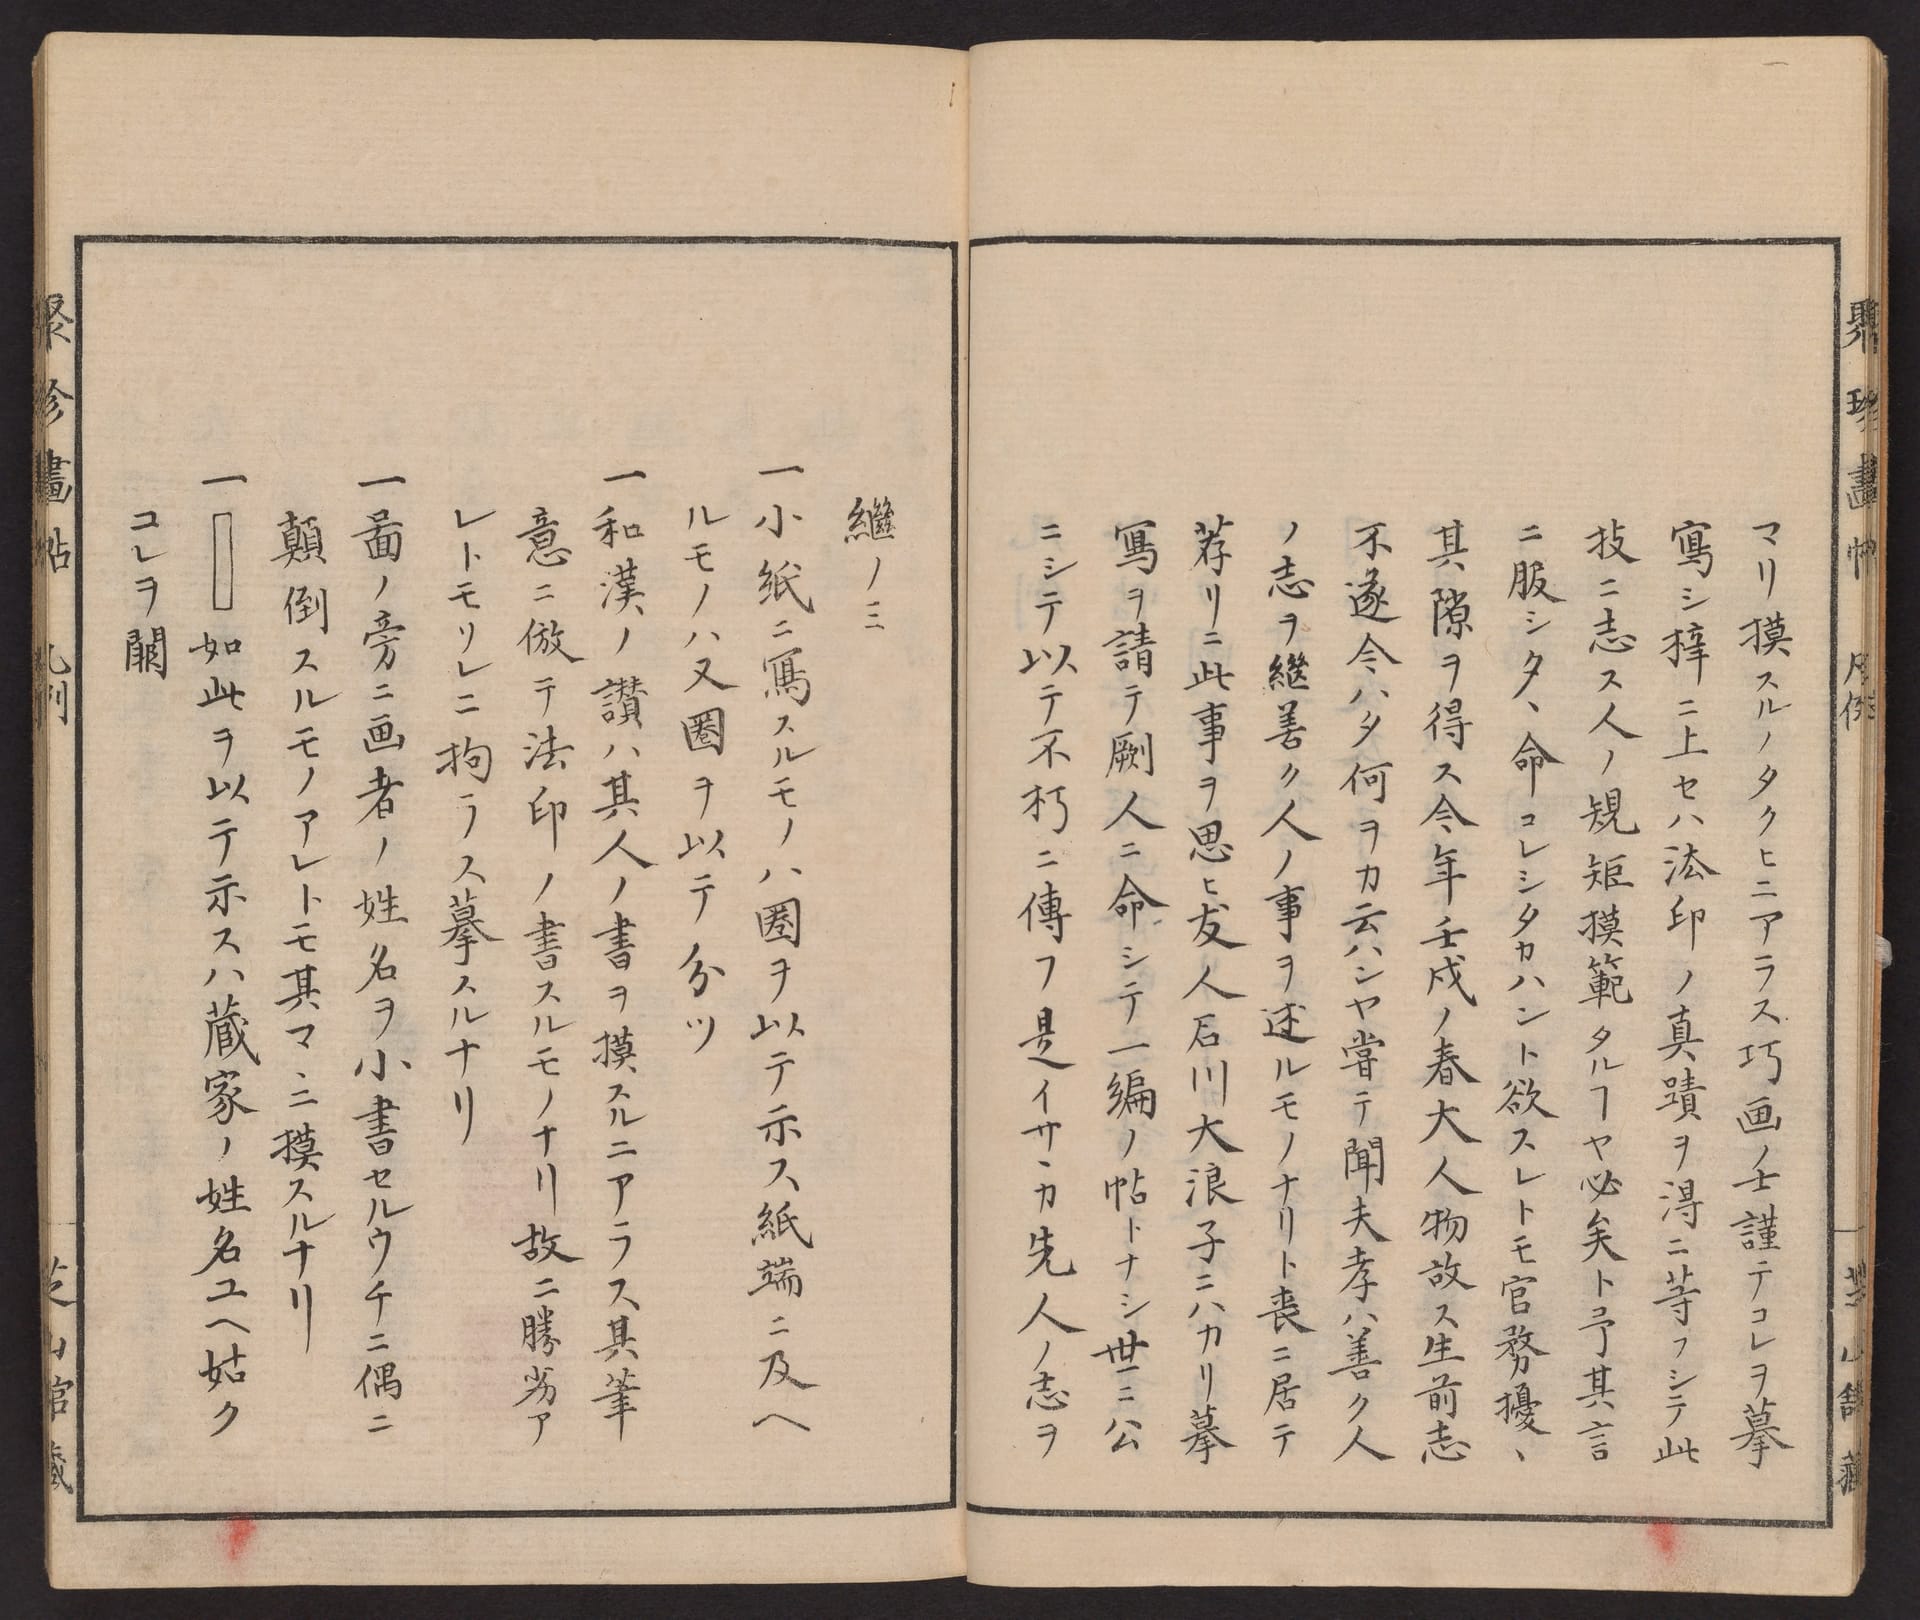 マリ摸スルノタクヒニアラス巧画ノ士謹テコレヲ摹
寫シ梓ニ上セハ法印ノ真蹟ヲ淂ニ等フシテ此
技ニ志ス人ノ規矩摸範タルヿヤ必矣ト予其言
ニ服シタヽ命コレシタカハント欲スレトモ官務擾ヽ
其隙ヲ得ス今年壬戌ノ春大人物故ス生前志
不遂今ハタ何ヲカ云ハンヤ甞テ聞夫孝ハ善ク人
ノ志ヲ継善ク人ノ事ヲ述ルモノナリト喪ニ居テ
荐リニ此事ヲ思ヒ友人石川大浪子ニハカリ摹
寫ヲ請テ劂人ニ命シテ一編ノ帖トナシ世ニ公
ニシテ以テ不朽ニ傳フ是イサヽカ先人ノ志ヲ
継ノミ
一小紙ニ寫スルモノハ圏ヲ以テ示ス紙端ニ及ヘ
ルモノハ又圏ヲ以テ分ツ
一和漢ノ讃ハ其人ノ書ヲ摸スルニアラス其筆
意ニ倣テ法印ノ書スルモノナリ故ニ勝劣ア
レトモリレニ拘ラス摹スルナリ
一畐ノ旁ニ画者ノ姓名ヲ小書セルウチニ偶ニ
顛倒スルモノアレトモ其マヽニ摸スルナリ
一 如此ヲ以テ示スハ蔵家ノ姓名ユヘ姑ク
コレヲ闕
聚珍畫帖 凡例 芝山館藏
聚珍畫帖 凡例 芝山館藏